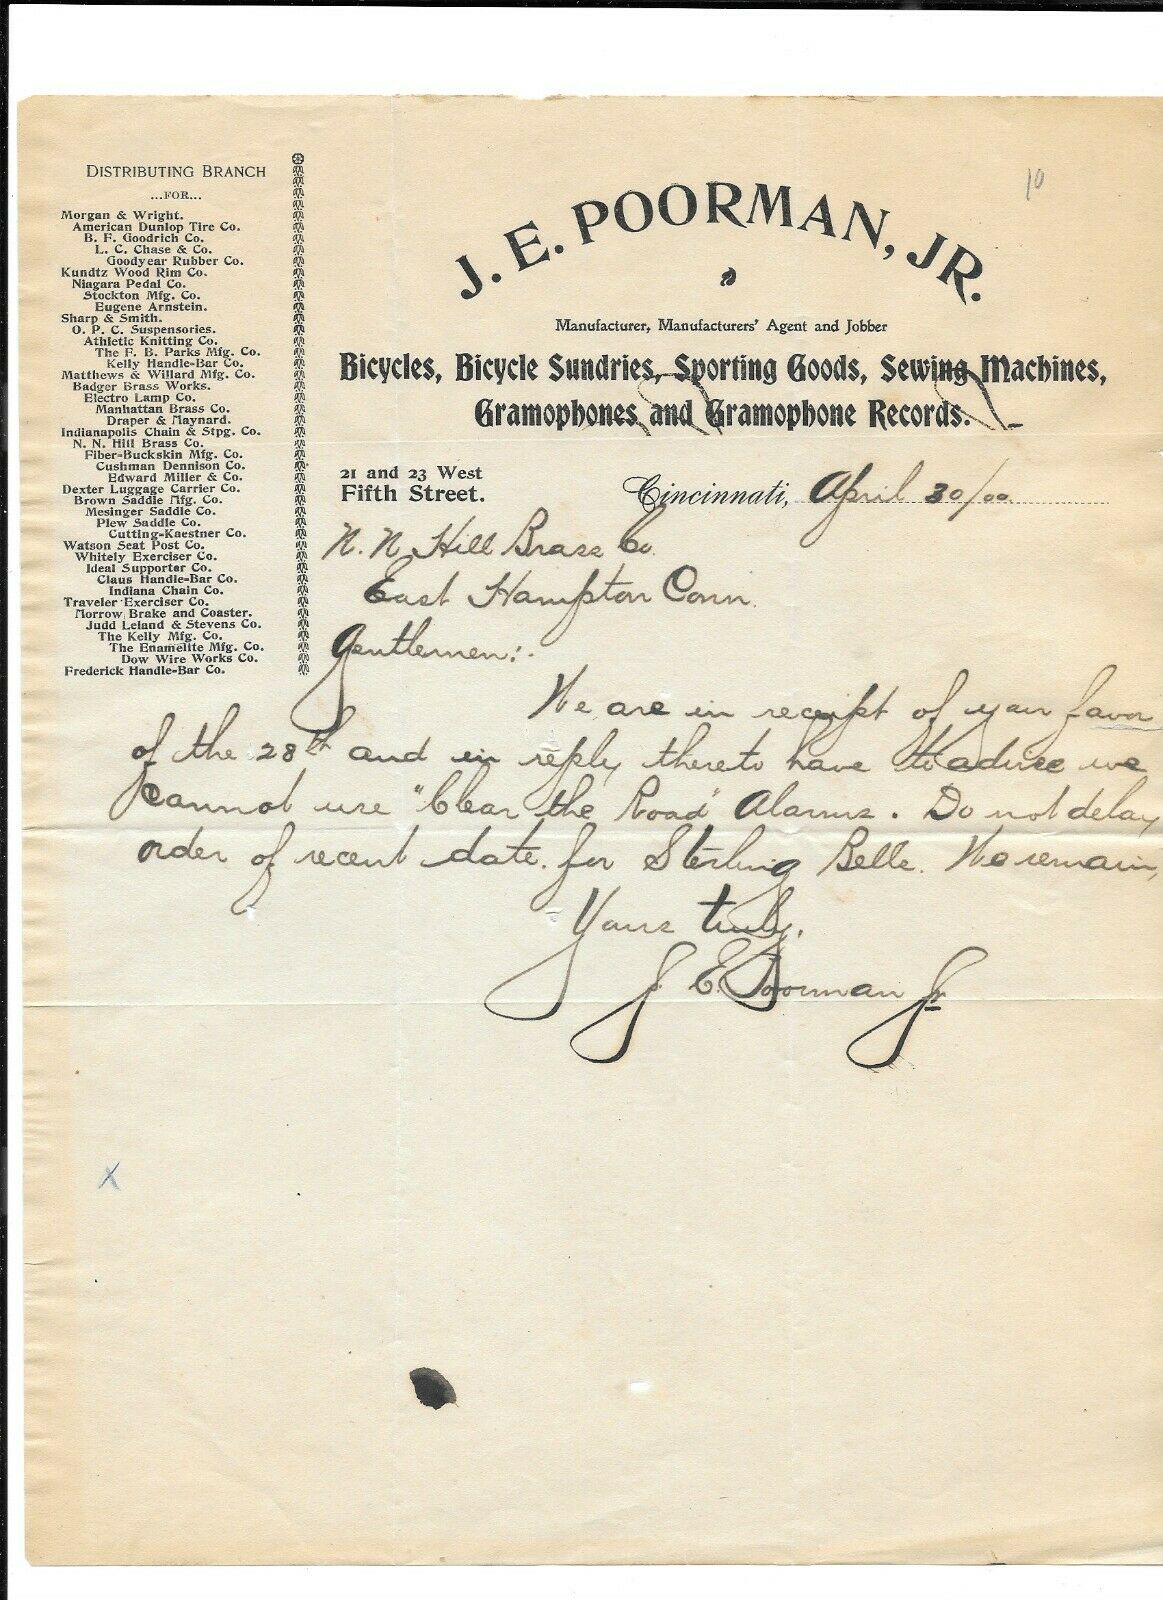 10
DISTRIBUTING BRANCH
...FOR...
Morgan & Wright.
American Dunlop Tire Co.
B. F. Goodrich Co.
L. C. Chase & Co.
Goodyear Rubber Co.
Kundtz Wood Rim Co.
Niagara Pedal Co.
Stockton Mfg. Co.
Eugene Arnstein.
Sharp & Smith.
O. P. C. Suspensories.
Athletic Knitting Co.
The F. B. Parks Mfg. Co.
Kelly Handle-Bar Co.
Matthews & Willard Mfg. Co.
Badger Brass Works.
Electro Lamp Co.
Manhattan Brass Co.
Draper & Maynard.
Indianapolis Chain & Stpg. Co.
N. N. Hill Brass Co.
Fiber-Buckskin Mfg. Co.
Cushman Dennison Co.
Edward Miller & Co.
Dexter Luggage Carrier Co.
Brown Saddle Mfg. Co.
Mesinger Saddle Co.
Plew Saddle Co.
Cutting-Kaestner Co.
Watson Seat Post Co.
Whitely Exerciser Co.
Ideal Supporter Co.
Claus Handle-Bar Co.
Indiana Chain Co.
Traveler Exerciser Co.
Morrow Brake and Coaster.
Judd Leland & Stevens Co.
The Kelly Mfg. Co.
The Enamelite Mfg. Co.
Dow Wire Works Co.
Frederick Handle-Bar Co.
J. E. POORMAN, JR.
Manufacturer, Manufacturers' Agent and Jobber
Bicycles, Bicycle Sundries, Sporting Goods, Sewing Machines,
Gramophones and Gramophone Records.
21 and 23 West
Fifth Street.
Cincinnati, April 30/00
N. N Hill Brass Co.
East Hampton Conn.
Gentlemen:.
We are in receipt of your favor
of the 28th and in reply thereto have to advise we
cannot use "Clear the Road" Alarms. Do not delay
order of recent date for Sterling Bells. We remain,
Yours truly,
J. E. Poorman Jr
X